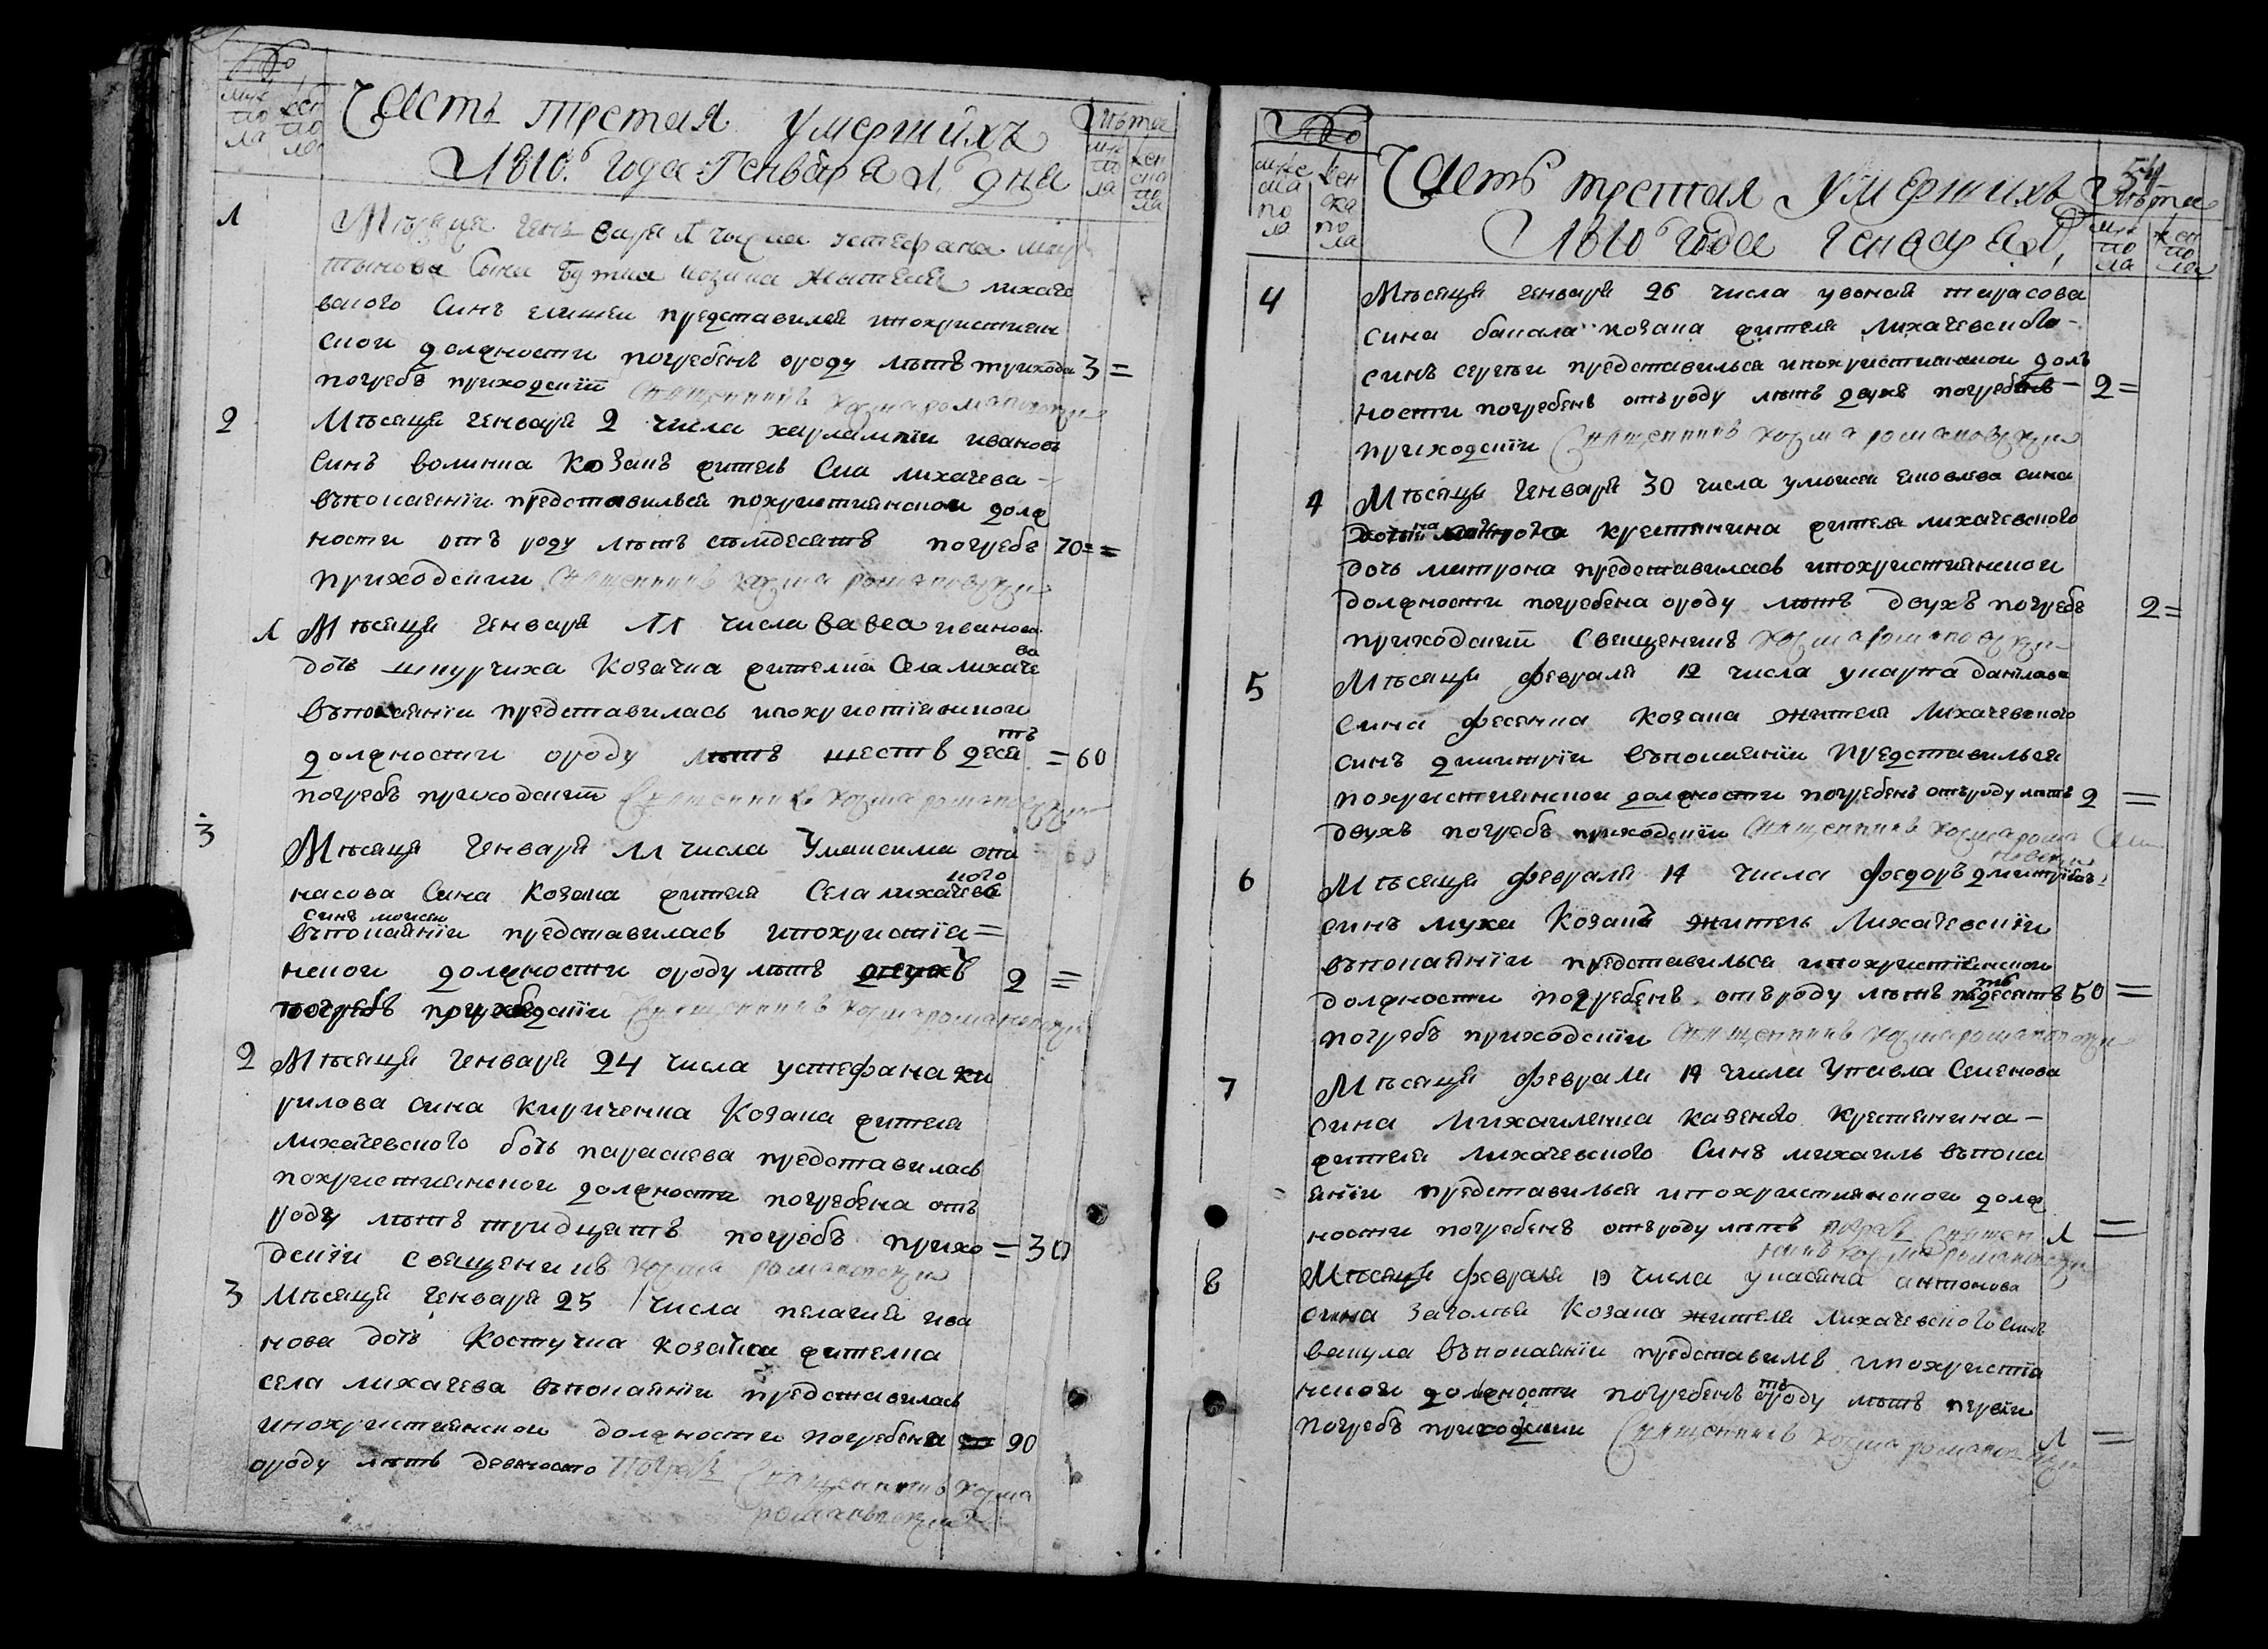 Но
муж по ла
жен по ла
Часть третая Умершихъ
1810.го Года Генваря 1го дня
Лѣта
муж по ла
жен ска по ла
1
Мѣсяца генъваря 1 числа устефана
сына козака жителя лихаче
вского Синъ представилъся ипохристиян
скои должности погребенъ ороду лѣтъ трихъ 3 =
погребъ приходскїй Священникъ козма романовскии
2
Мѣсяца генъваря 2 числа харлампїи ивановъ
Синъ волинка козакъ жителъ Сла лихачева -
въпокаянїи представилъся похристиянскои долж
ности отъ роду лѣтъ съмдесятъ погребъ 70 =
приходскии священникъ козма романовскии
1
Мѣсяца генъваря 11 числа иванова
дочъ шпурчиха Козачка жителка Села лихаче
ва
въпокаянїи представиласъ ипохристїянскои
должности ороду лѣтъ шестъ деся = 60
тъ
погребъ приходскїй Священникъ козма романовскии
3
Мѣсяца генъваря 11 числа Умаксима опа
насова Сина Козака жителя Села лихачева
ского
синъ моисеи
въпокаянїи представиласъ ипохристїя =
нскои должности ороду лѣтъ двухъ 2 =
погребъ приходскїи Священникъ козма романовскии
2
Мѣсяца генъваря 24 числа устефана ки
рилова сина Кириченка Козака жителя
лихачевского дочъ параскева представиласъ
похристиянскои должности погребена отъ
роду лѣтъ тридцатъ погребъ прихо = 30
дскїи священникъ козма романовскии
3
Мѣсяца генъваря 25 числа пелагия ива
нова дочъ Костучка козачка жителка
села лихачева въпокаянїи представиласъ
ипохристиянскои должности погребена 90
ороду лѣтъ девяносто Погребъ Священникъ козма
романовскии
Но
мужс ка по ла
жен ска по ла
Часть третая Умершихъ
1810го Года Генваря 1,
54
Лѣта
муж по ла
жен по ла
4
Мѣсяца генваря 26 числа тарасова
сина козака жителя лихачевского -
синъ сергѣи представилъся ипохристиянскои долъ
ности погребенъ отъроду лѣтъ двухъ погребенъ - 2 =
приходскїи Священникъ козма романовскии
4
Мѣсяца генваря 30 числа умоисея яковлева сина
крестянина жителя лихачевского
дочъ митрона представиласъ ипохристиянскои
должности погребена ороду лѣтъ двухъ погребъ 2 =
приходскїй священникъ козма романовскии
5
Мѣсяца февраля 12 числа укарпа данилова
сина фесенка козака жителя Лихачевского
синъ димитрїи въпокаянїи представилъся
похристиянскои должности погребенъ отъроду лѣтъ 2 =
двухъ погребъ приходскїи священникъ козма рома
новскии
6
Мѣсяца февраля 14 числа федоръ дмитрїевъ
синъ муха Козакъ жителъ Лихачевскїи
въпокаянїи представилъся ипохристїянскои
должности погребенъ отъроду лѣтъ пядесятъ 50 =
погребъ приходскїи священникъ козма романовскии
7
Мѣсяца февраля 14 числа Упавла Семенова
сина Михаиленка казеного крестянина -
жителя лихачевского Синъ михаилъ въпока
янїи представилъся ипохристиянскои долж
ности погребенъ отъроду лѣтъ погребъ Священ 1 =
никъ козма романовскии
8
Мѣсяца февраля 19 числа укасяна антонова
сина Козака жителя лихачевского синъ
вакула въпокаянїи представилъ ипохристїа
нскои должности погребенъ ороду лѣтъ первїи
тъ
погребъ приходскии Священникъ козма романовскии 1 =